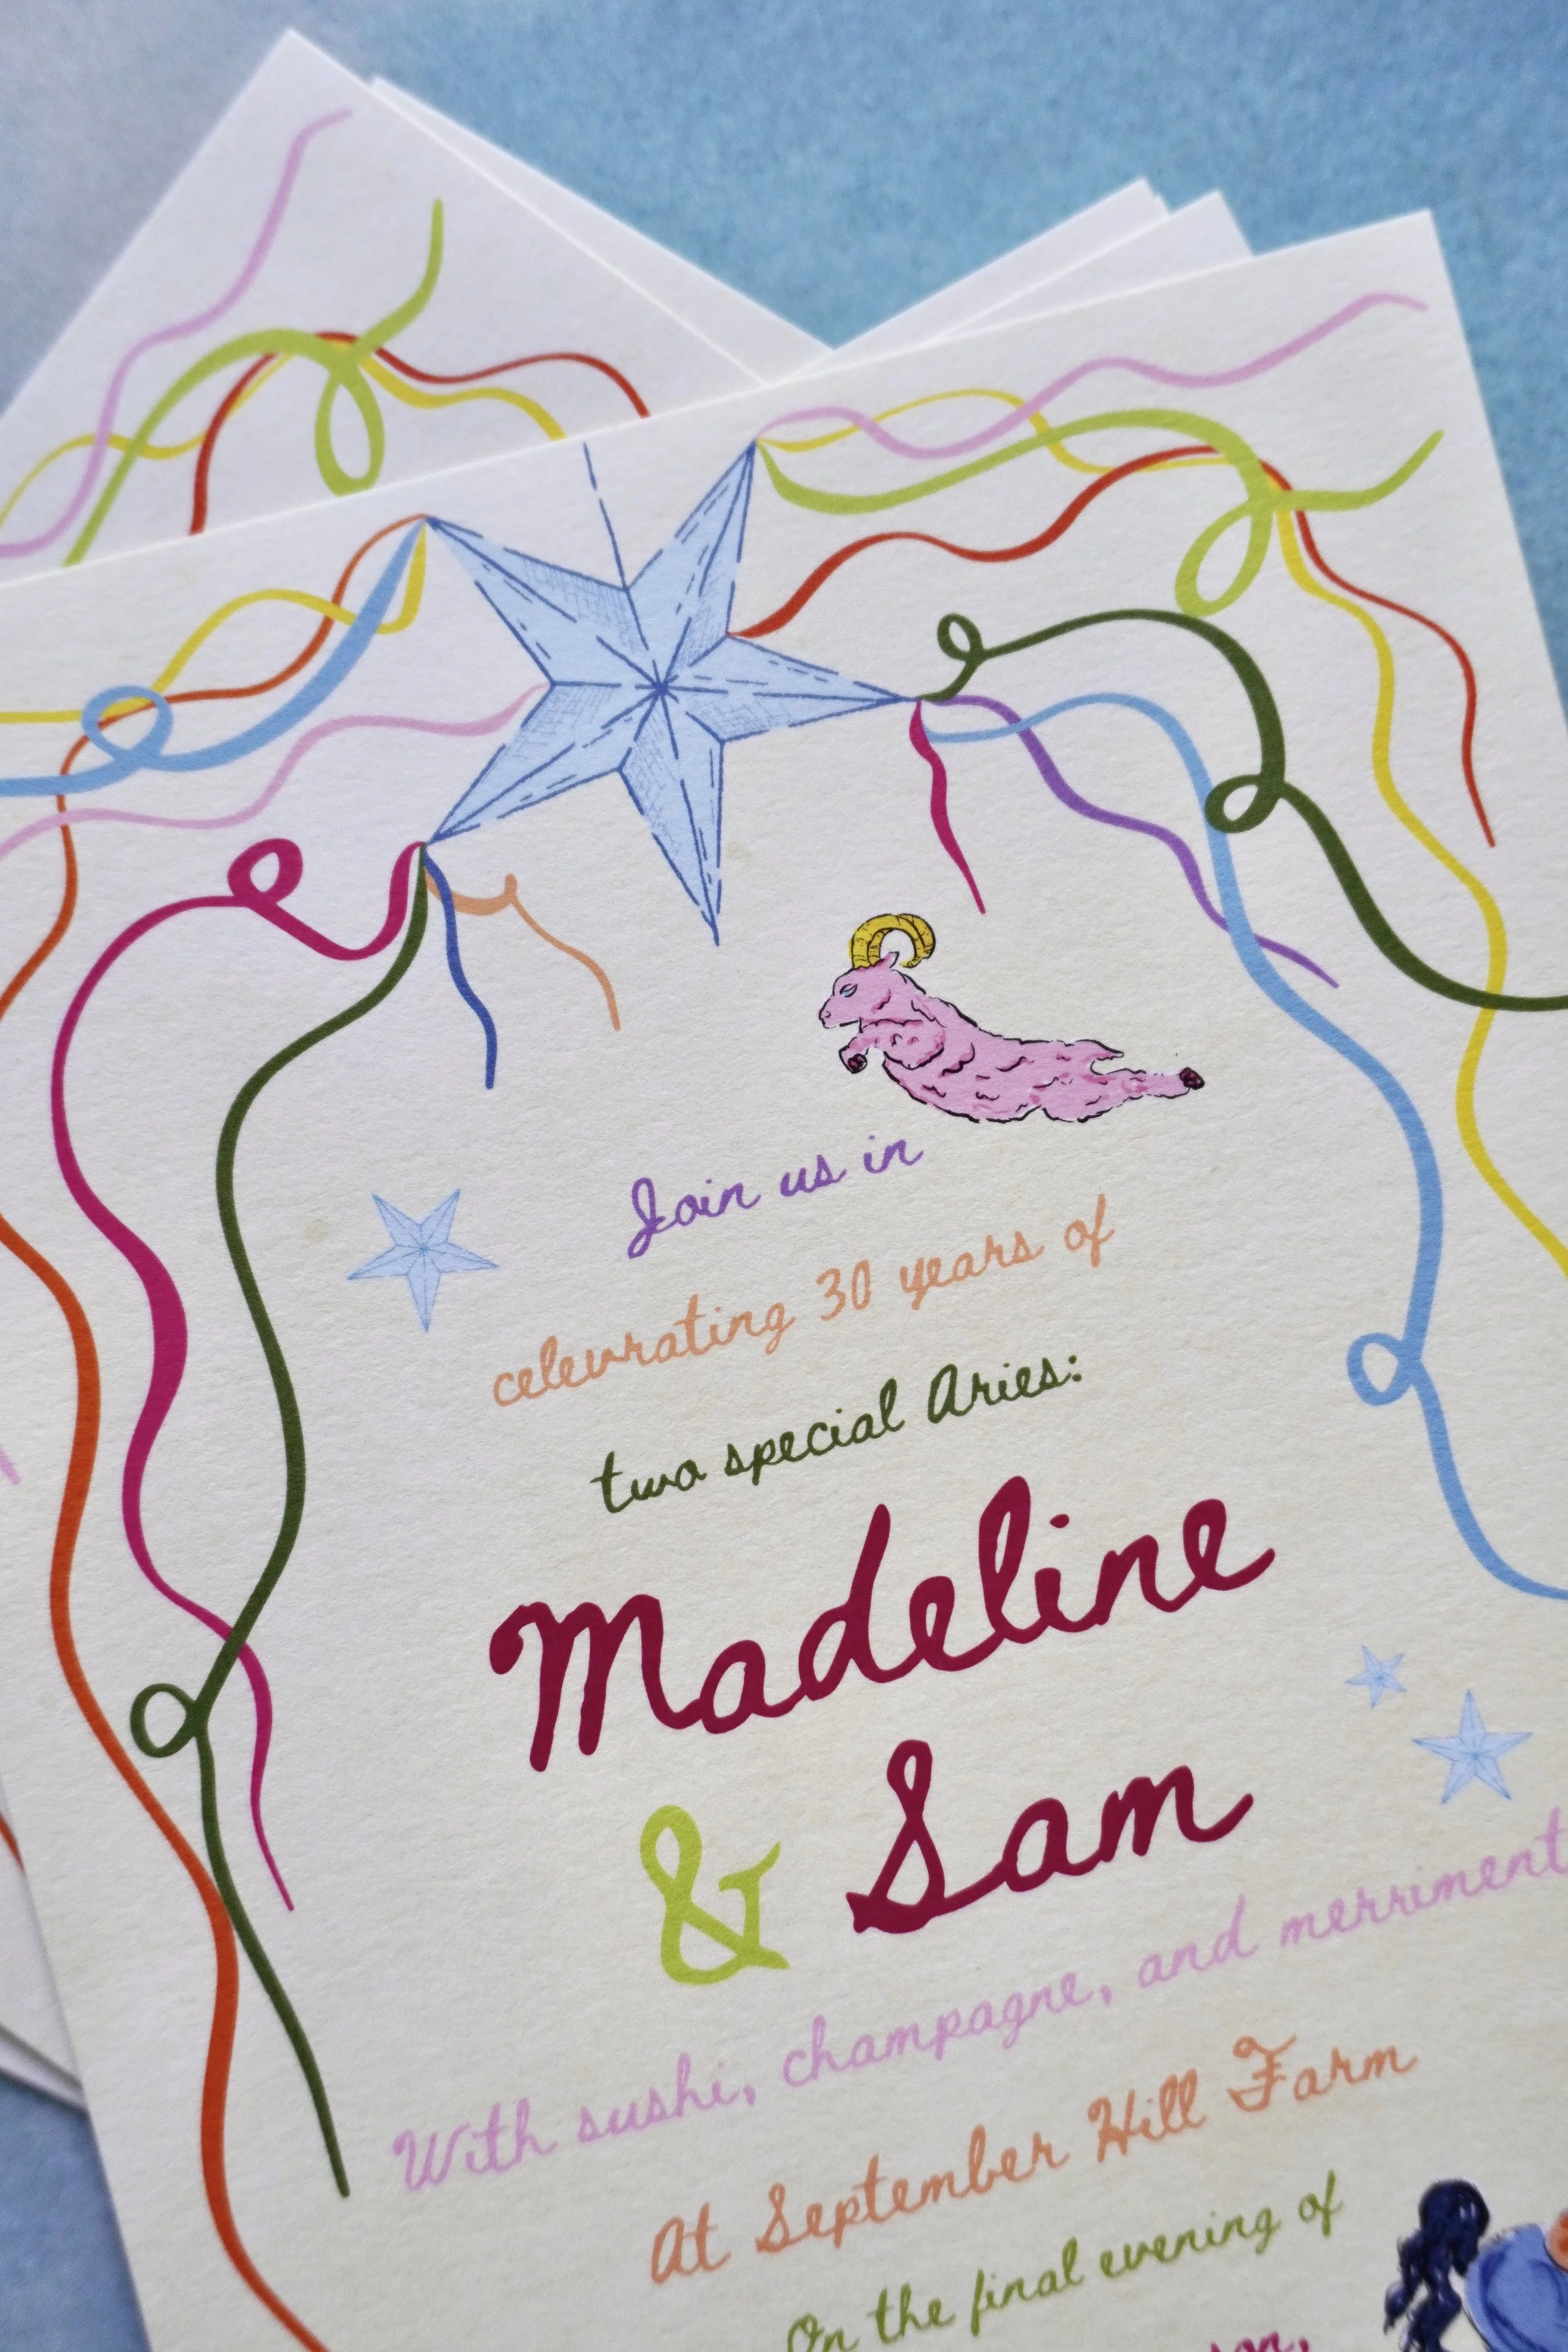 Join us in
celevrating 30 years of
two special Aries:
Madeline
& Sam
With sushi, champagne, and merriment
At September Hill Farm
On the final evening of